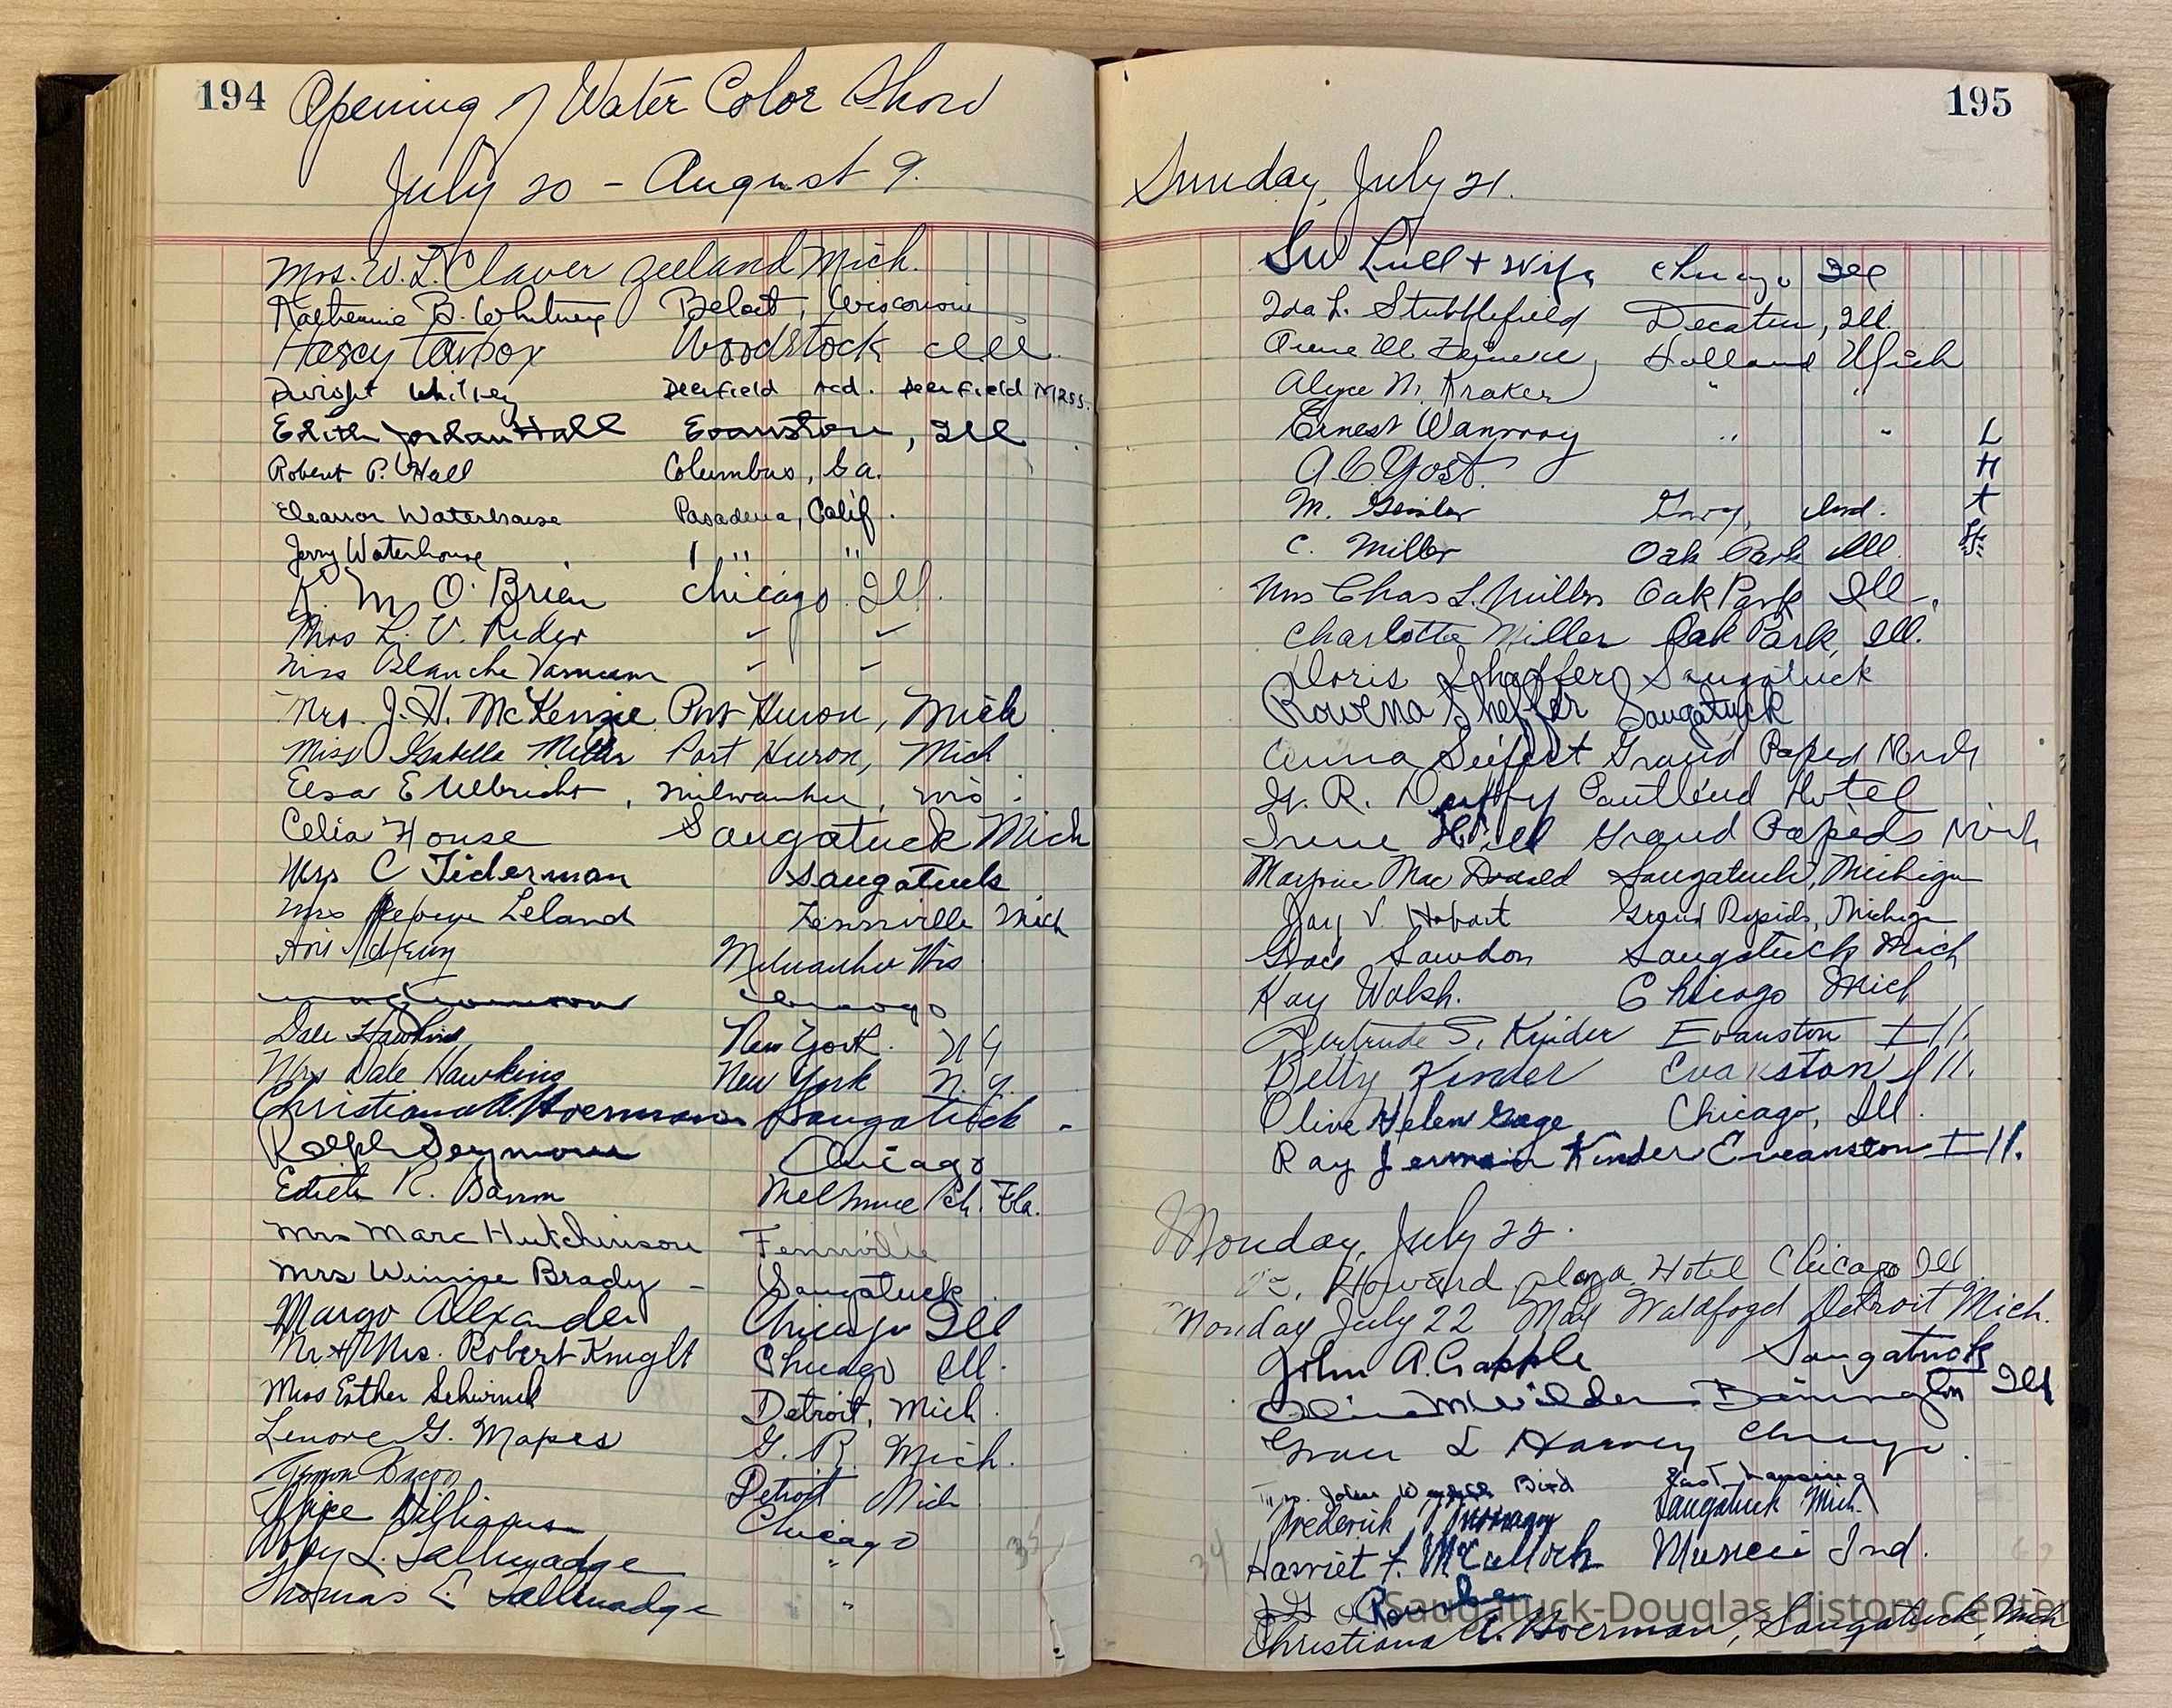 194
Opening of Water Color Show
July 20 – August 9.
Mrs. W. L. Claver Zeeland Mich.
Katherine B. Whitney Beloit, Wisconsin
Woodstock Ill.
Dwight Whitney Deerfield Acd. Deerfield Mass.
Edith Jordan Hall Evanston, Ill
Robert P. Hall Columbus, Ga.
Eleanor Waterhouse Pasadena, Calif.
Jerry Waterhouse " "
K. M. O'Brien Chicago Ill.
Mrs L. V. Rider
Miss Blanche Varnum
Mrs. J. H. McKenzie Port Huron, Mich
Miss Isabella Port Huron, Mich
Elsa E Ulbricht, Milwaukee, Wis.
Celia House Saugatuck Mich
Mrs C Tiderman Saugatuck
Mrs George Leland Fennville Mich
Milwaukee Wis
Chicago
Dale Hawkins New York. N Y
Mrs Dale Hawkins New York N.Y.
Christiana A. Hoerman Saugatuck -
Ralph Seymour Chicago
Edith R. Fla.
Mrs Marc Hutchinson Fennville
Mrs Winnie Brady - Saugatuck
Margo Alexander Chicago Ill
Mr & Mrs. Robert Knight Chicago Ill.
Miss Esther Detroit, Mich
Lenore G. Mapes G. R. Mich.
Bacon Detroit Mich
Alice Williams Chicago
Abby L. Tallmadge "
Thomas E Tallmadge "
35
195
Sunday, July 21.
Lull + wife Chicago Ill
Ida L. Stubblefield Decatur, Ill.
Holland Mich
Alyce N. Kraker " "
Ernest Wanrooy " " L
A. C. Yost H
M. Gary, Ind. t
C. Miller Oak Park Ill.
Mrs Chas L. Miller Oak Park Ill.
Charlotte Miller Oak Park, Ill.
Doris Shaffer Saugatuck
Rowena Sheffer Saugatuck
Anna Seifert Grand Rapid Mich
R. Duffy Pantlind Hotel
Irene Hill Grand Rapids Mich
Marjorie Mac Donald Saugatuck, Michigan
Jay V. Hobart Grand Rapids, Michigan
Grace Sawdon Saugatuck Mich
Kay Walsh. Chicago Mich
Gertrude S. Kinder Evanston Ill.
Betty Kinder Evanston Ill.
Olive Helen Gage Chicago, Ill.
Ray Jermain Kinder Evanston Ill.
Monday, July 22.
Howard Plaza Hotel Chicago Ill
Monday July 22 May Waldfogel Detroit Mich.
John A. Crapple Saugatuck
Wilder Ill
Grace L Harvey Chicago.
John Bird East Lansing
Frederick Saugatuck Mich.
Harriet F. McCulloch Muncie Ind.
24
Saugatuck-Douglas History Center
Christiana A. Hoerman, Saugatuck, Mich